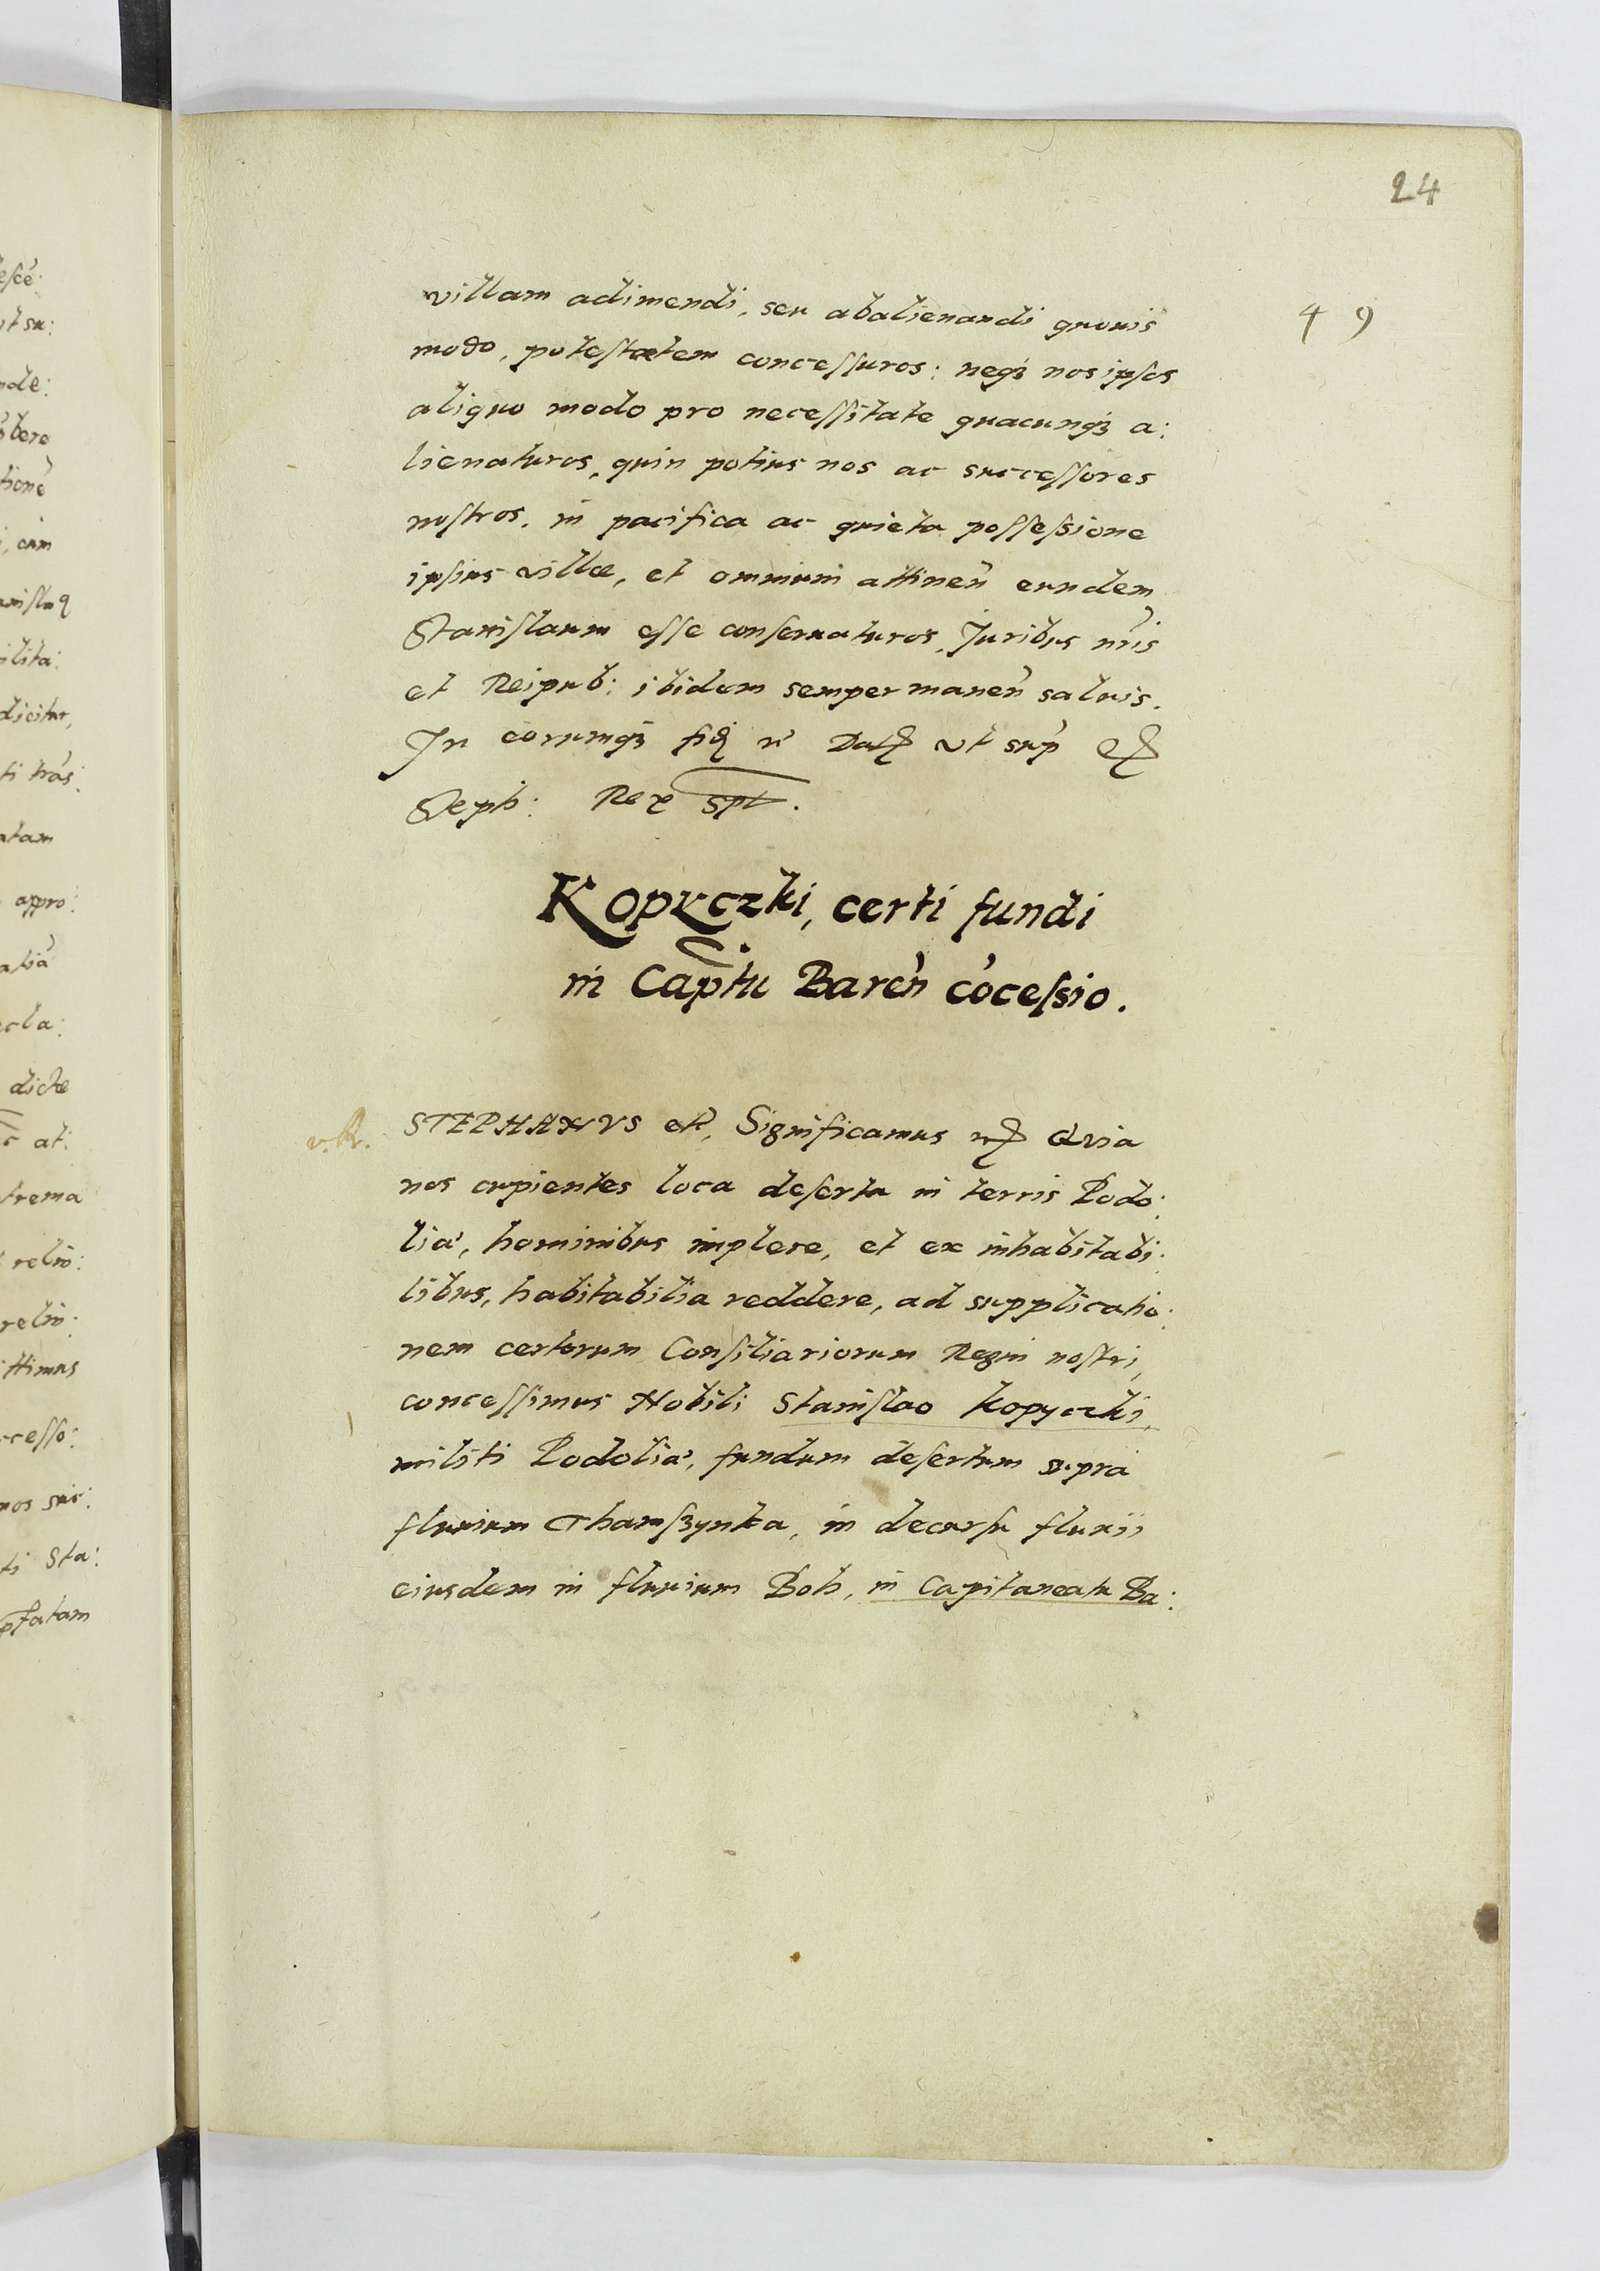 24
49
villam adimendi, seu abalienandi quouis
modo, potestatem concessuros: neq3 nos ipsos
aliquo modo pro necessitate quacunq3 a:
lienaturos, quin potius nos ac successores
nostros, in pacifica ac quieta possessione
ipsius villæ, et omnium attinen̄ eundem
Stanislaum esse conseruaturos, Juribus nr̄is
et Reipub: ibidem semper manen̄ saluis.
In eorumq3 fid Dat ut sup
Steph: Rex spt.
Kopyczki, certi fundi
in Cap̄tu Baren̄ cōcessio.
v. R.
STEPHANVS etc, Significamus Quia
nos cupientes loca deserta in terris Podo:
liæ, hominibus implere, et ex inhabitabi:
libus, habitabilia reddere, ad supplicatio:
nem certorum Consiliariorum Regni nostri,
concessimus Nobili Stanislao Kopyczki,
militi Podoliæ, fundum desertum supra
fluuium Thamszynka, in decursu fluuii
eiusdem in fluuium Boh, in Capitaneatu Ba: